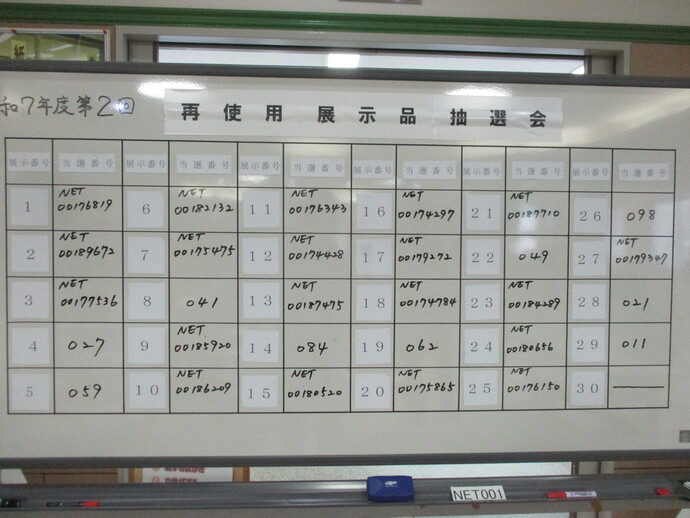 和7年度第2回
再使用展示品 抽選会
展示番号 当選番号 展示番号 当選番号 展示番号 当選番号 展示番号 当選番号 展示番号 当選番号 展示番号 当選番号
1 NET 00176819 6 NET 00182132 11 NET 00176343 16 NET 00174297 21 NET 00187710 26 098
2 NET 00189672 7 NET 00175475 12 NET 00174428 17 NET 00179272 22 049 27 NET 00179347
3 NET 00177536 8 041 13 NET 00187475 18 NET 00174784 23 NET 00184289 28 021
4 027 9 NET 00185920 14 084 19 062 24 NET 00180656 29 011
5 059 10 NET 00186209 15 NET 00180520 20 NET 00175865 25 NET 00176150 30 —
NET001